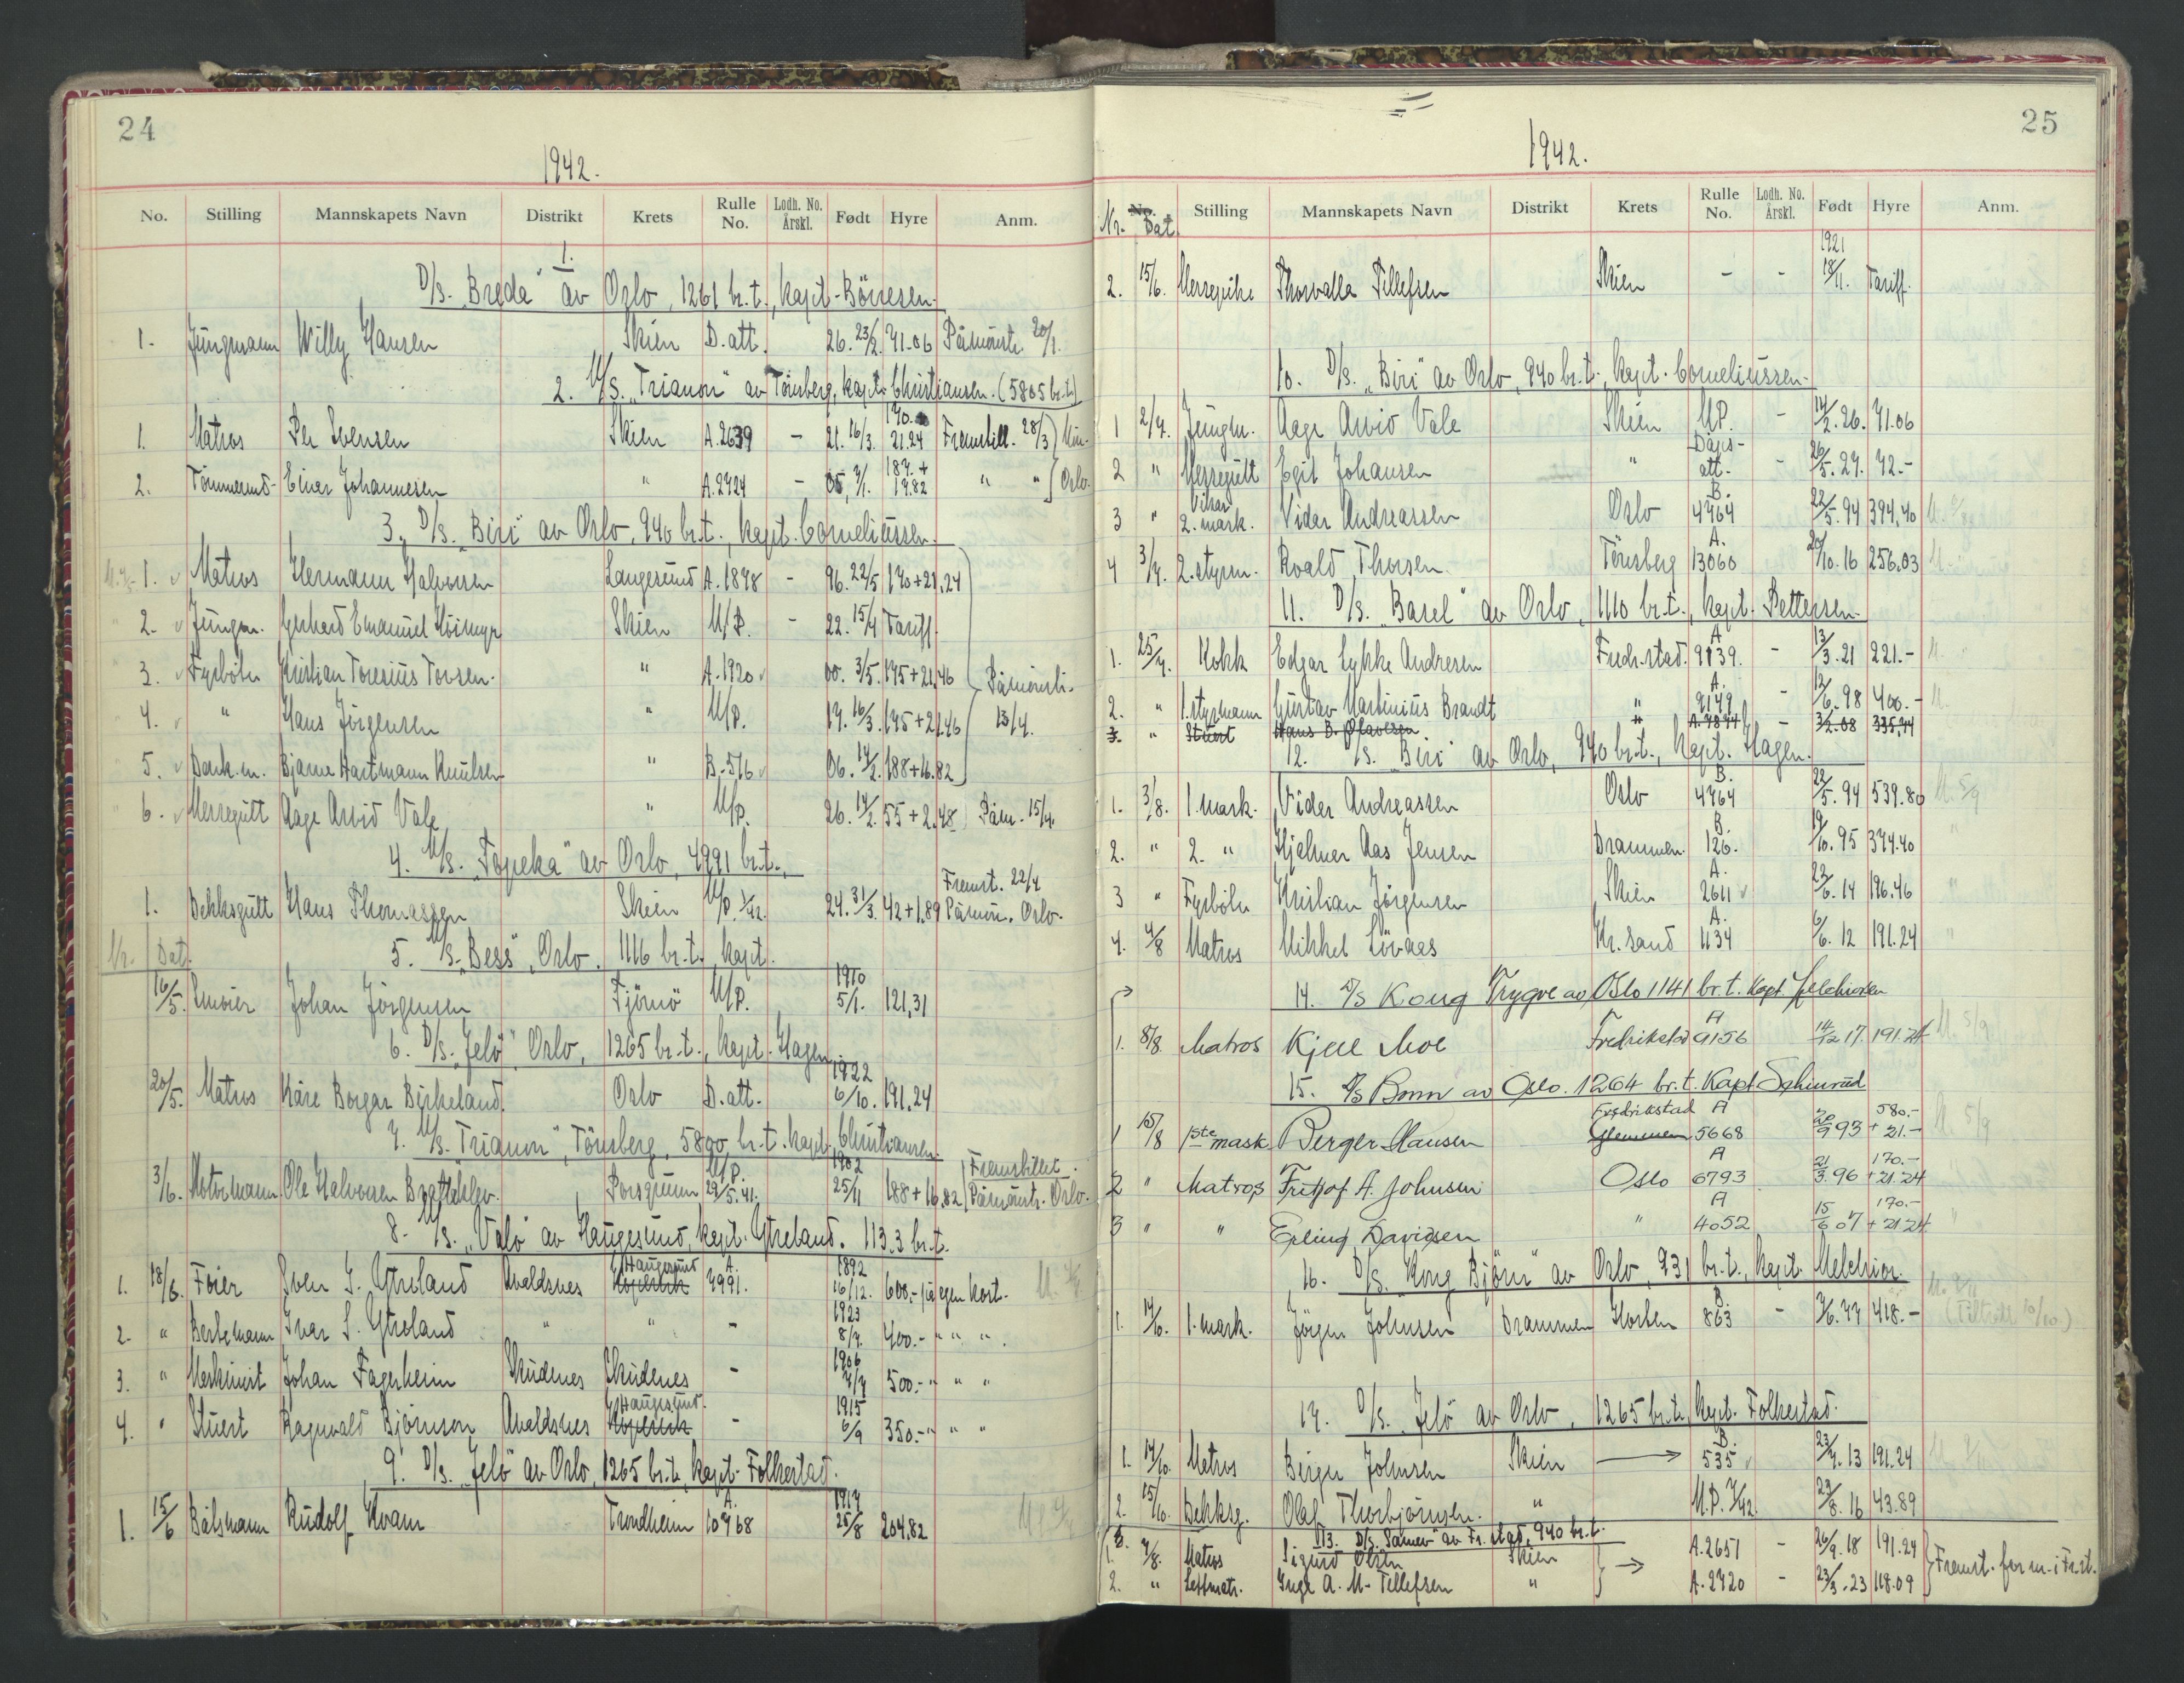 24
1942.
No. Stilling Mannskapets Navn Distrikt Krets Rulle No. Lodh. No. Årskl. Født Hyre Anm.
1.
D/S. „Breda" av Oslo, 1261 br.t., kapt. Börresen.
1. Jüngmann Willy Hansen Skien D.att. 26. 23/2. 71.06 Påmönstr. 20/1.
2. M/S. „Trianon" av Tönsberg, kapt. Christiansen. (5805 br.t.)
1. Matros Per Svensen Skien A.2639 - 21. 16/3. 170.- 21.24 Fremstill. 28/3
2. Tömmermd. Einar Johannesen " A.2724 - 05, 7/1. 187.+ 17.82 " " Oslo.
3. D/S. „Biri" av Oslo, 940 br.t., kapt. Corneliüssen.
1. Matros Hermann Halvorsen Langesünd A.1878 - 96. 22/5 170+21.24
2. Jüngm. Gerhard Emanuel Höimyr Skien M/P. - 22. 15/4 Tariff.
3. Fyrböter Kristian Toresius Tovsen. " A.1920 00. 3/5. 175+21,46 Påmönstr.
4. " Hans Jörgensen " M/P. 17. 16/3. 175+21.46 13/4.
5. Donk.m. Bjarne Hartmann Knutsen " B.516 06. 14/2. 188+16.82
6. Messegütt Aage Arvid Vale " M/P. 26. 14/2. 55+2.48 Påm. 15/4.
4. M/S. „Topeka" av Oslo, 4991 br.t.,
1. Dekksgütt Hans Thomassen Skien M/P. 1/42. 24. 31/3. 42+1.89 Fremst. 22/4 Påmön. Oslo.
Nr. Dat.
5. M/S. „Bess", Oslo. 1116 br.t. kapt.
16/5. Smörer Johan Jörgensen Tjömö M/P. 1910 5/1. 121,31
6. D/S. „Jelö" Oslo, 1265 br.t., kapt. Hagen.
20/5. Matros Kåre Borgar Birkeland. Oslo D.att. 1922 6/10. 191.24
7. M/S. „Trianon", Tönsberg, 5800 br.t. kapt. Christiansen.
3/6. Motormann Ole Halvorsen Brattekleiv. Porsgrunn M/P. 29/5.41. 1902 25/11 188+16.82 Fremstillet. Påmönstr. Oslo.
8. M/S. „Valö" av Haugesünd, kapt. Ytreland. 113.3 br.t.
1. 18/6. Förer Sven J. Ytreland Avaldsnes Haugesund A. 7991. 1892 16/12. 600,- på egen kost.
2. " Bestemann Ivar S. Ytreland " " - 1923 8/7. 400.- " " ".
3. " Maskinist Johan Fagerheim Skudenes Skudenes - 1906 4/7 500.- " " "
4. " Stüert Ragnvald Björnson Avaldsnes Haugesund. - 1915 6/9 350.- " " "
9. D/S. „Jelö" av Oslo, 1265 br.t., kapt. Folkestad.
1. 15/6 Båtsmann Rüdolf Kvam Trondheim A. 10768 1917 25/8 204.82
25
1942.
Nr. No. Dat. Stilling Mannskapets Navn Distrikt Krets Rulle No. Lodh. No. Årskl. Født Hyre Anm.
2. 15/6. Messepike Thorvalla Tellefsen Skien - - 1921 18/11. Tariff.
10. D/S. „Biri" av Oslo, 940 br.t., kapt. Corneliüssen.
1 2/7. Jüngm. Aage Arvid Vale Skien M.P. - 14/2.26. 71.06
2 " Messegütt Egil Johansen " Dåps-att. - 26/5.27. 72.-
3 " Vikar 2. mask. Vidar Andreassen Oslo B. 4764 22/5.94 394,40
4 3/7. 2.styrm. Roald Thorsen. Tönsberg A. 13060 20/10.16 256.03
11. D/S. „Basel" av Oslo, 1110 br.t., kapt. Pettersen.
1. 25/7. Kokk Edgar Lykke Andresen Fredr.stad. A 9139. - 13/3.21 221.-
2. " 1.styrmann Güstav Martinius Brandt " A. 9149 - 12/6.98 400.-
3. " Stüert Hans B. Olavesen " A.7874 - 3/2.08 335,74
12. D/S. „Biri" av Oslo, 940 br.t., kapt. Hagen.
1. 3/8. 1.mask. Vidar Andreassen Oslo B. 4764 22/5.94 539.80 M. 5/9
2. " 2. " Hjalmar Aas Jensen Drammen. B. 126. 19/10.95 374.40 "
3 " Fyrböter Kristian Jörgensen Skien A. 2611 22/6.14 196.46 "
4. 4/8 Matros Mikkel Lövaas Kr.sand A. 1134 6/6.12 191.24 "
14. D/S Kong Trygve av Oslo 1141 br.t. Kapt. Melchiorsen
1. 8/8. Matros Kjell Moe Fredrikstad A 9156 14/12 17. 191.24 M. 5/9
15. D/S Bonn av Oslo. 1264 br.t. Kapt. Schinrüd
1 15/8 1ste mask. Berger Hansen Fredrikstad Glemmen A 5668 20/9 93 580.- + 21.- M. 5/9
2 " Matros Fritjof A. Johnsen Oslo A 6793 21/3.96 170.- + 21.24
3 " " Erling Davidsen " A 4052 15/6 07 170.- + 21.24
16. D/S. „Kong Björn" av Oslo, 931 br.t., kapt. Melchior.
1. 14/10. 1.mask. Jörgen Johnsen Drammen Horten B. 863 - 7/6.77 418.-
17. D/S. Jelö av Oslo, 1265 br.t., kapt. Folkestad.
1. 14/10. Matros Birger Johnsen Skien → B. 535 23/7.13 191.24
2. 15/10. Dekksg. Olaf Thorbjörnsen. " M.P. 7/42. 29/8.16 43.89
13. D/S. „Sameis" av Fr.stad, 940 br.t.
1. 7/8. Matros Sigurd Olsen Skien → A.2651 - 26/9.18 191.24 Fremst. for m. i Fr.st.
2. " Lettmatr. Inge A. M. Tellefsen " A.2720 - 23/3.23 118.09